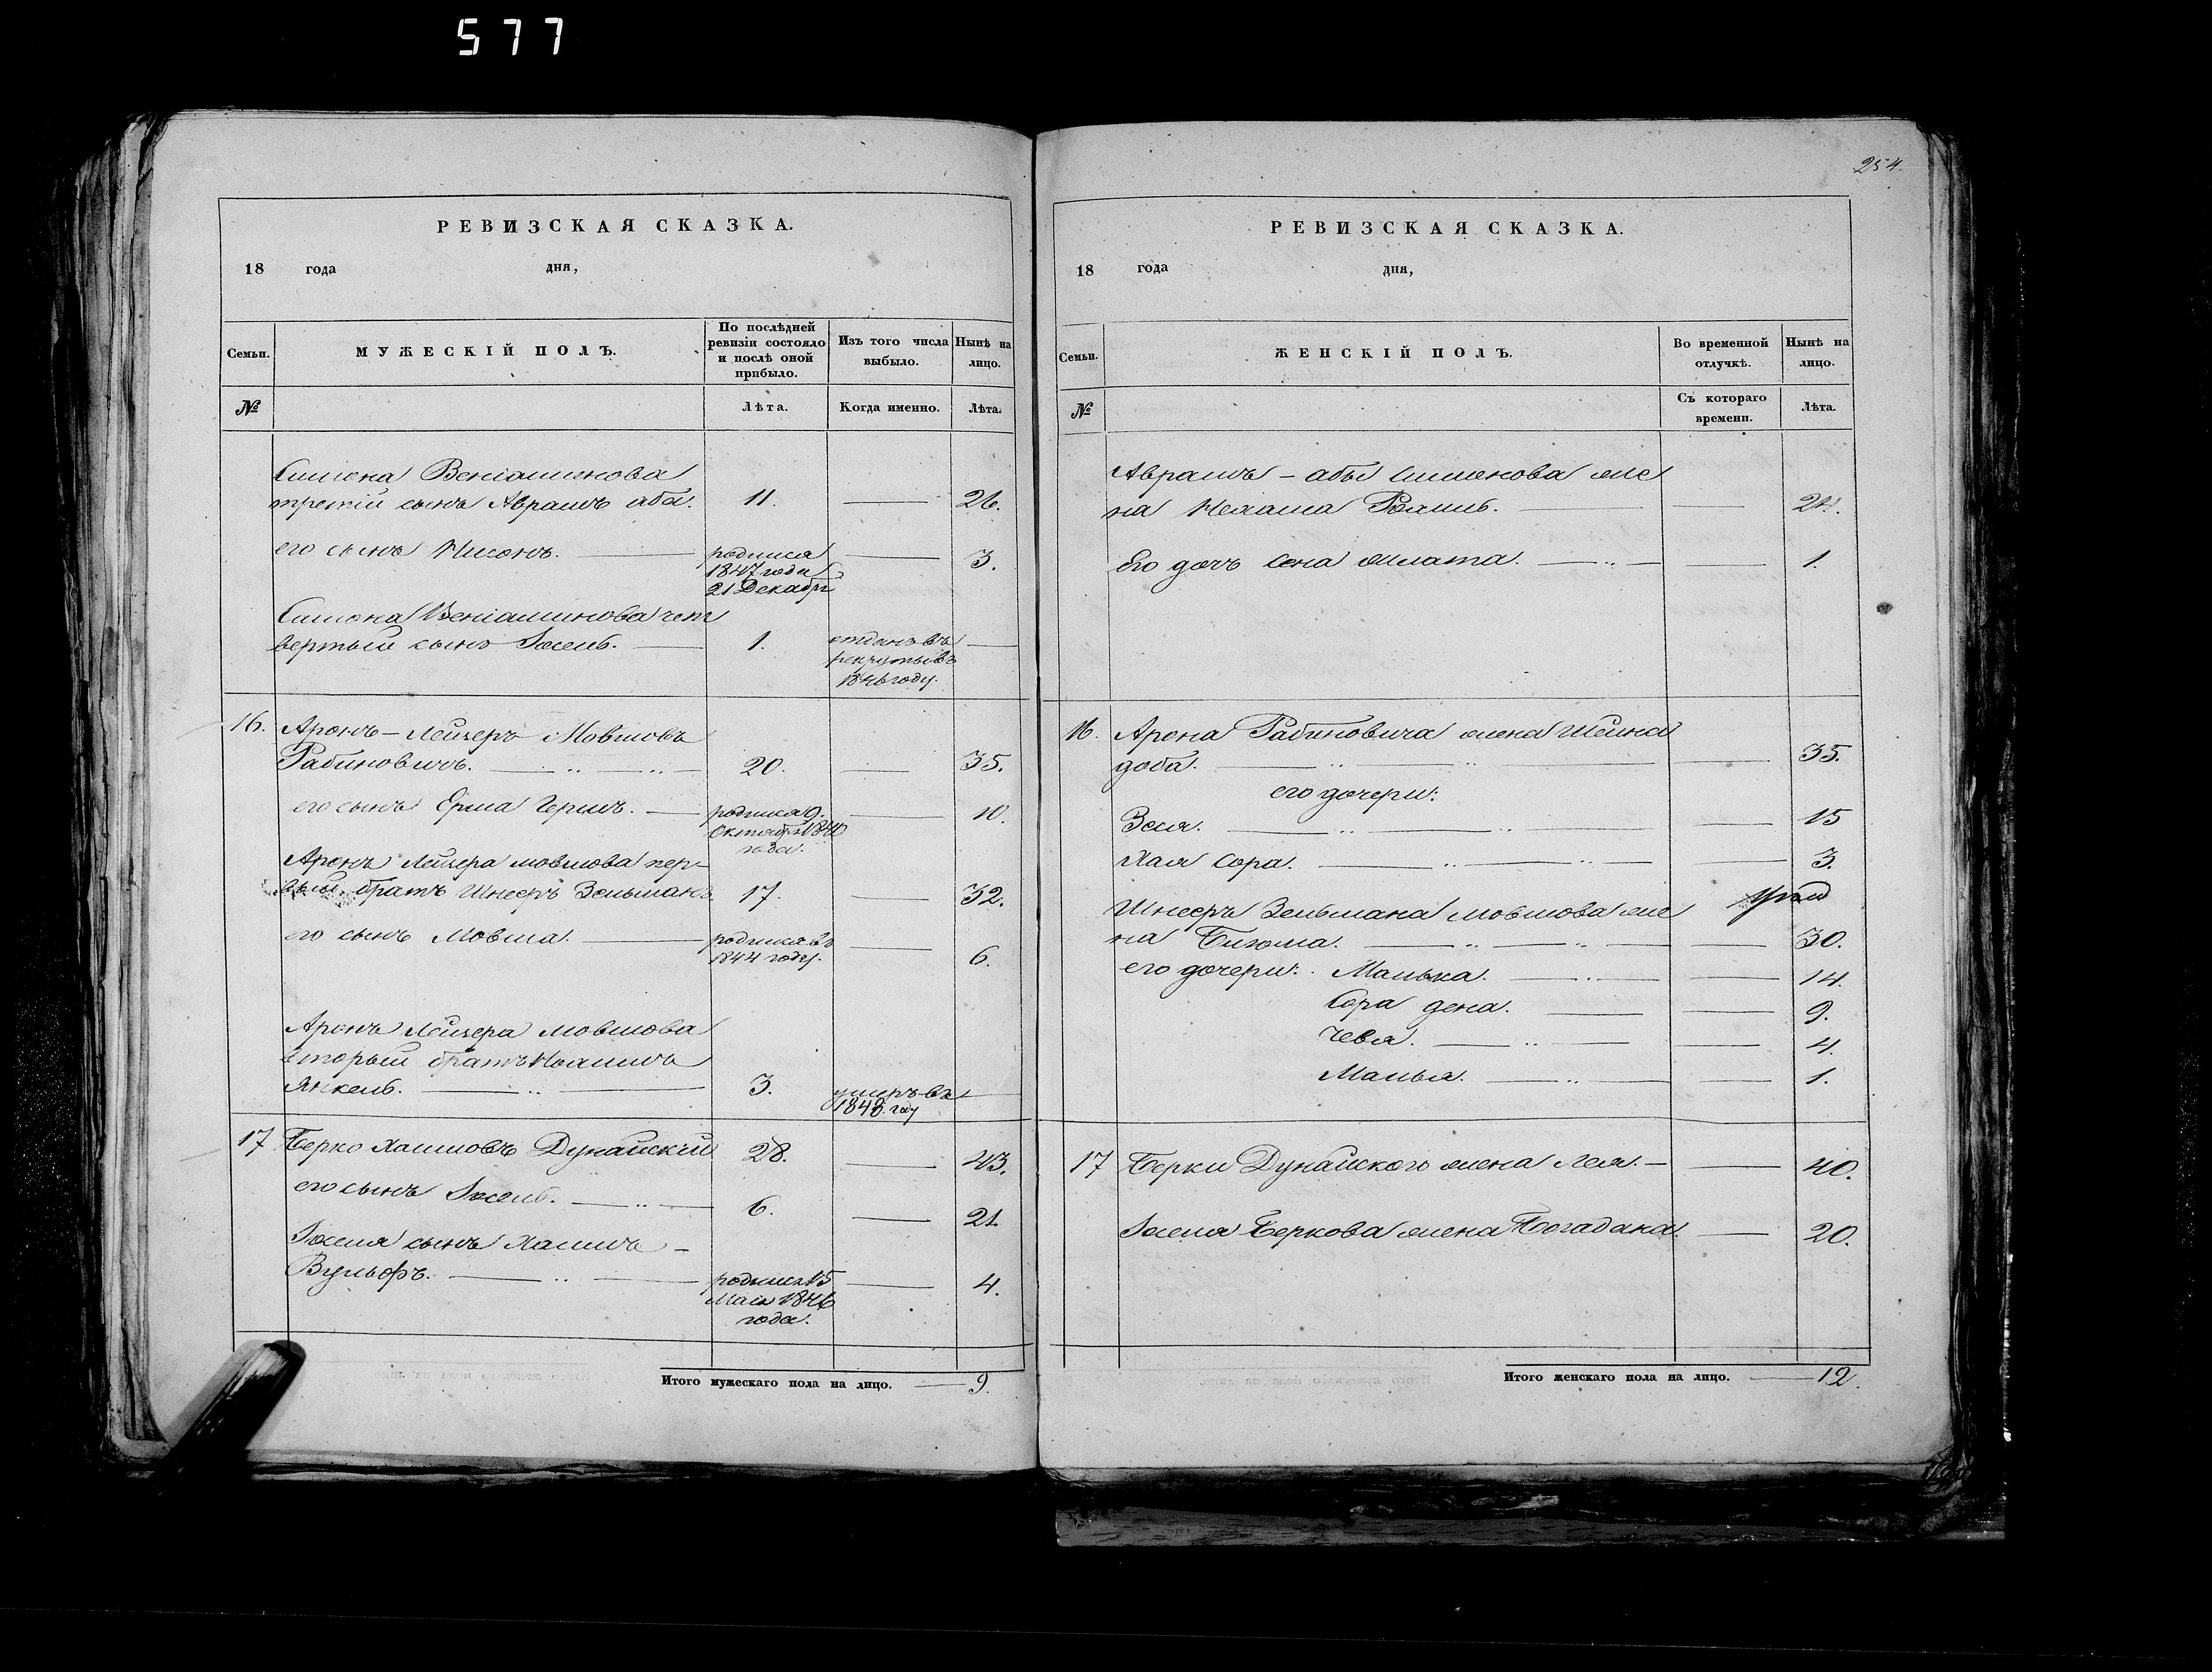 577
254.
РЕВИЗСКАЯ СКАЗКА.
18 года дня,
Семьи.
МУЖЕСКІЙ ПОЛЪ.
По послѣдней ревизіи состояло и послѣ оной прибыло.
Изъ того числа выбыло.
Нынѣ на лицо.
№
Лѣта.
Когда именно.
Лѣта.
Симона Веніаминова
третій сынъ Абрамъ аба. 11. 26.
его сынъ Нисонъ. родился 3.
1847 года
21 Декабря
Симона Веніаминова чет
вертый сынъ Іосель. 1. отданъ въ
рекруты въ
1846 году.
16. Аронъ-Лейзеръ Мовшовъ
Рабиновичъ. 20. 35.
его сынъ Ерма Герцъ. родился 9. 10.
Октября 1840
года.
Аронъ Лейзера Мовшова пер-
вый братъ Шнееръ Зельманъ 17. 32.
его сынъ Мовша. родился въ
1844 году. 6.
Аронъ Лейзера Мовшова
вторый братъ
Янкель. 3. умеръ въ
1848 году
17 Берко Хаимовъ Дунайскій 28. 43.
его сынъ Іосель. 6. 21.
Іоселя сынъ Хаимъ-
Вульфъ. родился 15 4.
Мая 1846
года.
Итого мужескаго пола на лицо. 9.
РЕВИЗСКАЯ СКАЗКА.
18 года дня,
Семьи.
ЖЕНСКІЙ ПОЛЪ.
Во временной отлучкѣ.
Нынѣ на лицо.
№
Съ котораго времени.
Лѣта.
Абрамъ-абы Симонова же
на Нехама 24.
Его дочь Сона Злата. 1.
16. Арона Рабиновича жена Шейна
доба. 35.
его дочери:
Зеся. 15
Хая Сора. 3.
Шнееръ Зельмана Мовшова же
на 30.
его дочери: Малька. 14.
Сора дена. 9.
1.
4.
17 Берки Дунайского жена Лея. 40.
Іоселя Беркова жена Богадана. 20.
Итого женскаго пола на лицо. 12.